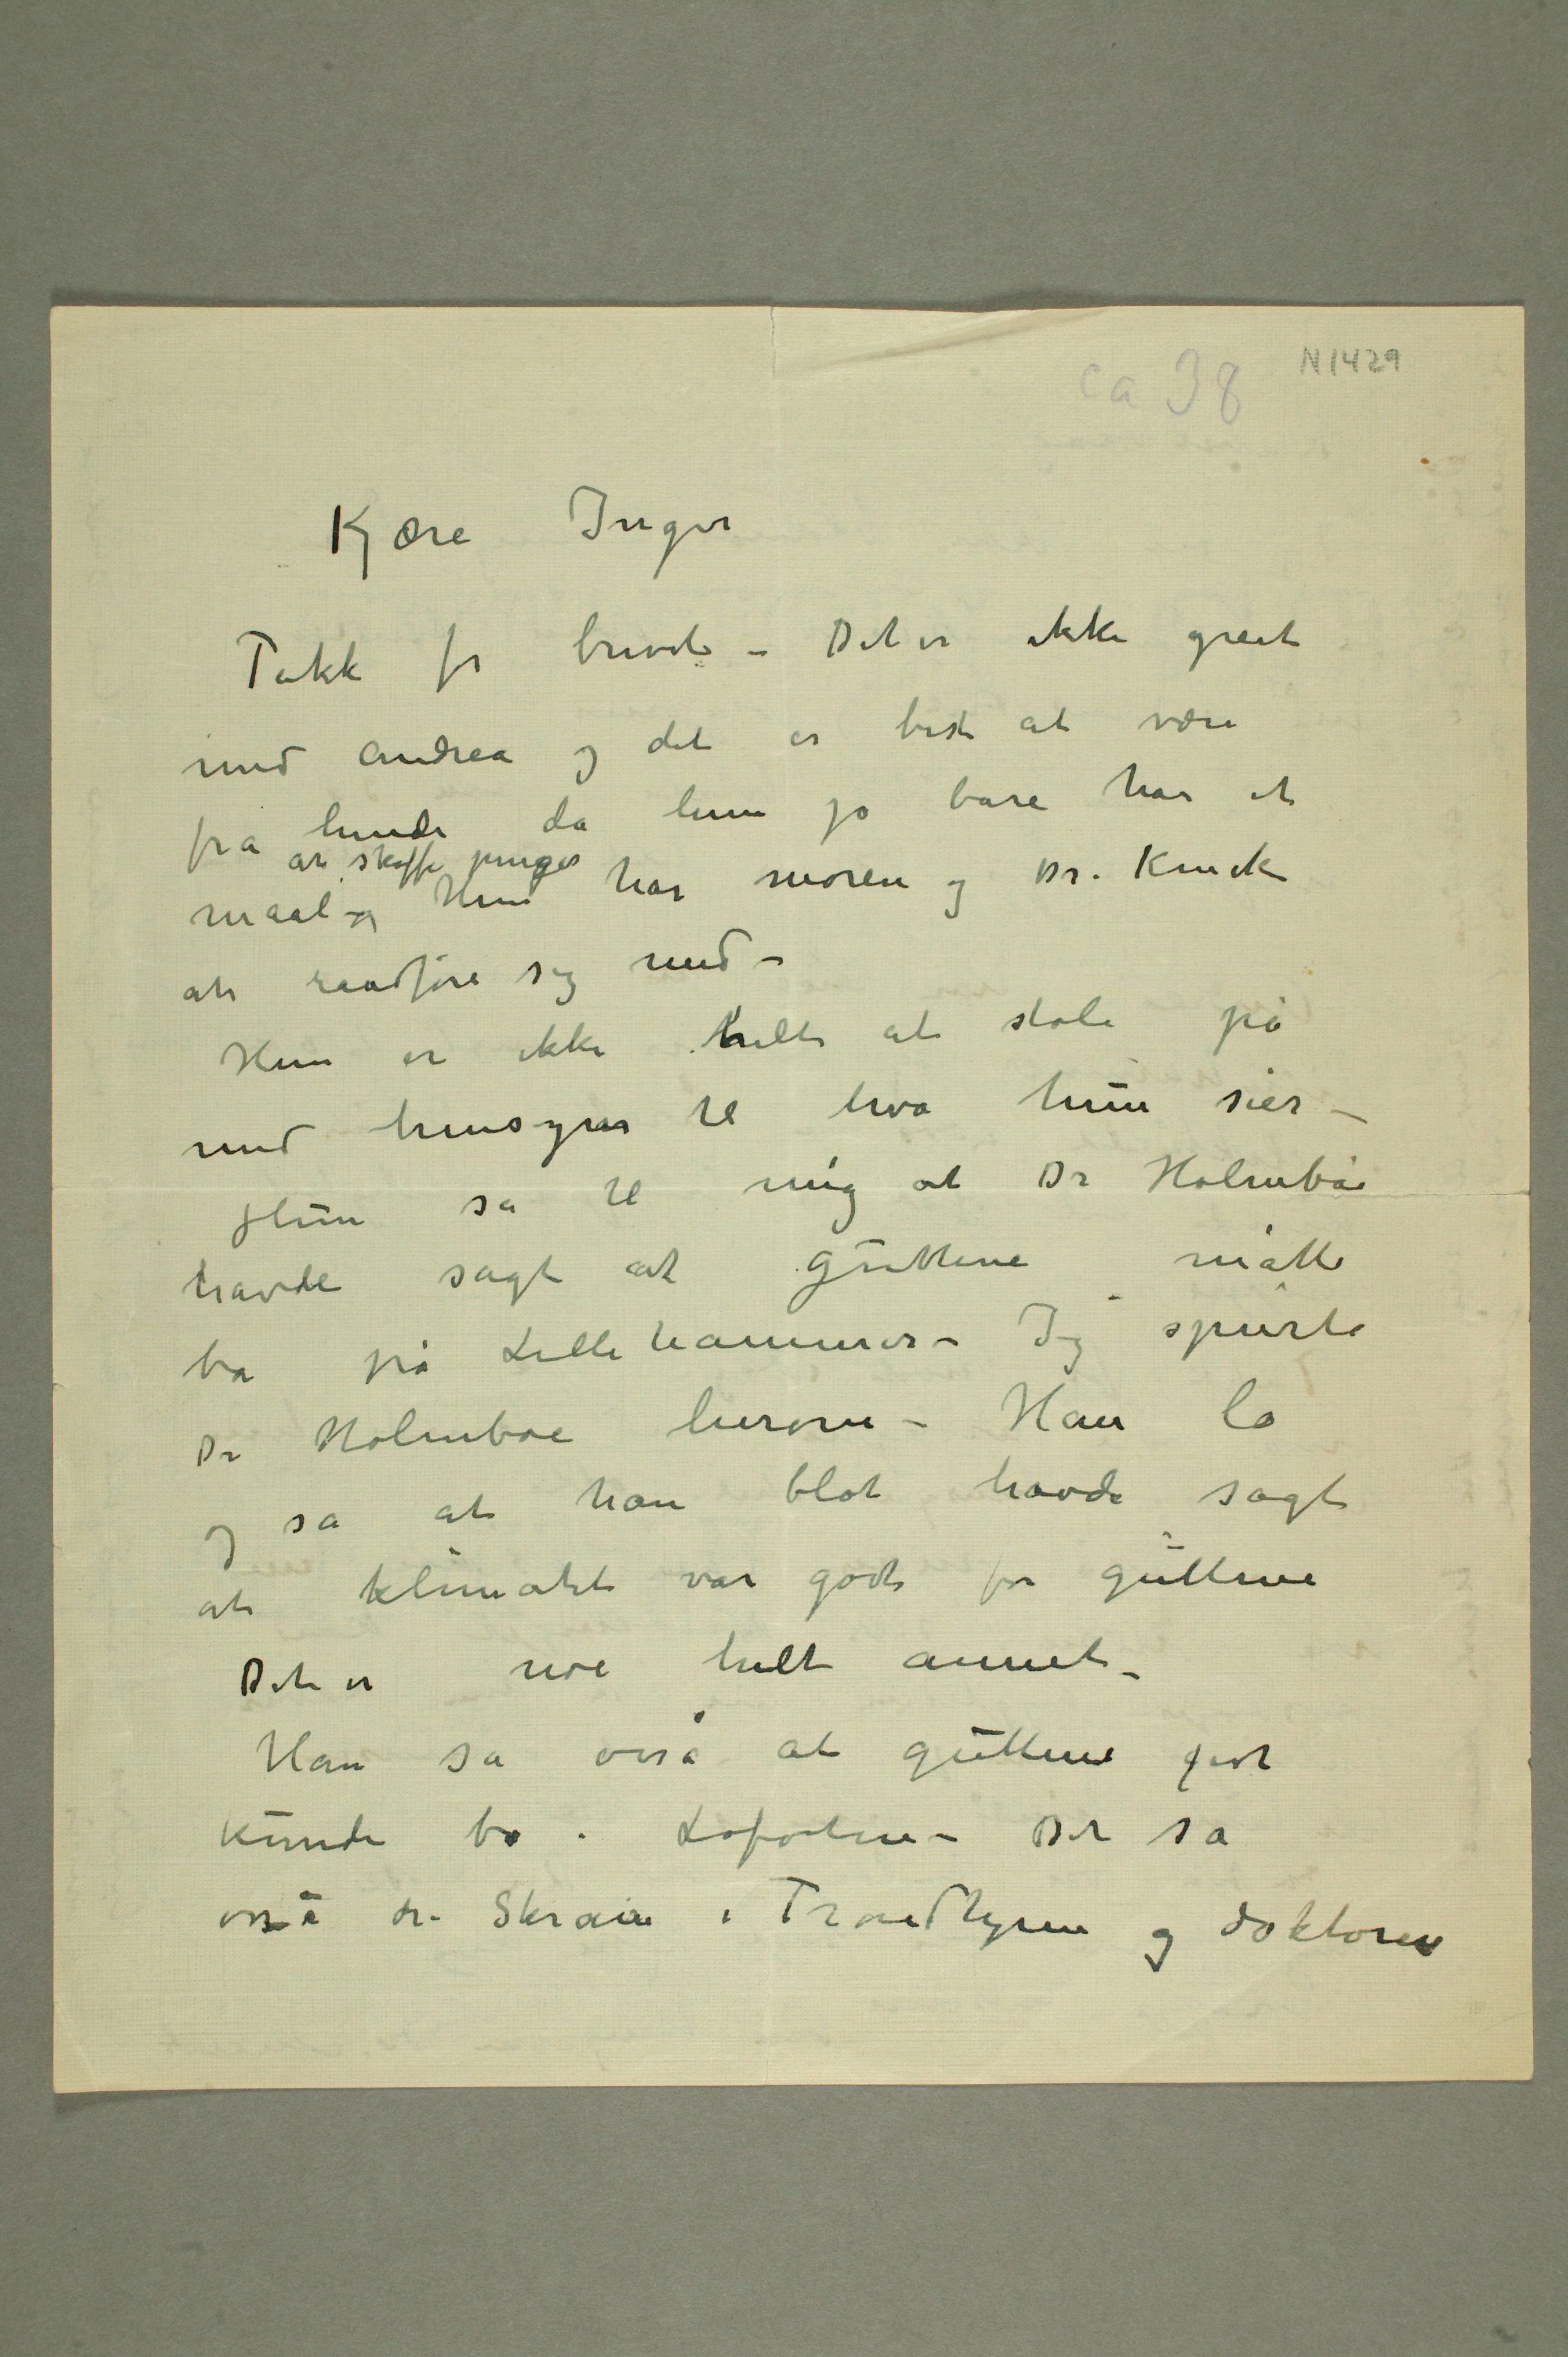 ca 38 N 1429
Kjære Inger
Takk for brevet – Det er ikke greit
med Andrea og det er best at være
fra hende da hun jo bare har et
at skaffe penger
maal – og Hun har moren og Dr. Kinck
at raadføre sig med –
Hun er ikke helt at stole på
med hensyn til hva hun sier –
Hun sa til mig at Dr Holmboe
havde sagt at guttene måtte
bo på Lillehammer – Jeg spurte
Dr Holmboe herom – Han lo
og sa at han blot havde sagt
at klimatet var godt for guttene
Det er noe helt annet –
Han sa også at guttene godt
kunde bo i Lofoten – Det sa
også dr. i Trondhjem og doktoren